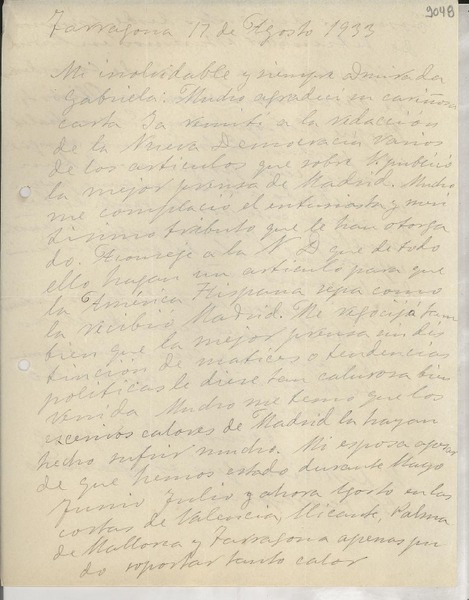 9048
Tarragona 17 de Agosto 1933
Mi inolvidable y siempre admirada
Gabriela: Mucho agradecí su cariñosa
carta Ya remití a la redacción
de la Nueva Democracia varios
de los artículos que sobre V publicó
la mejor prensa de Madrid. Mucho
me complació el entusiasta y
tributo que le han otorga
do. Aconsejé a la N D que de todo
ello hagan un artículo para que
la América Hispana sepa como
la recibió Madrid. Me regocijó tam
bien que la mejor prensa sin dis
tinción de matices o tendencias
políticas le diese tan calurosa bien
venida Mucho me temo que los
calores de Madrid la hayan
hecho sufrir mucho. Mi esposa apesar
de que hemos estado durante Mayo
Junio Julio y ahora Agosto en las
costas de Valencia, Alicante, Palma
de Mallorca y Tarragona apenas pu
do soportar tanto calor